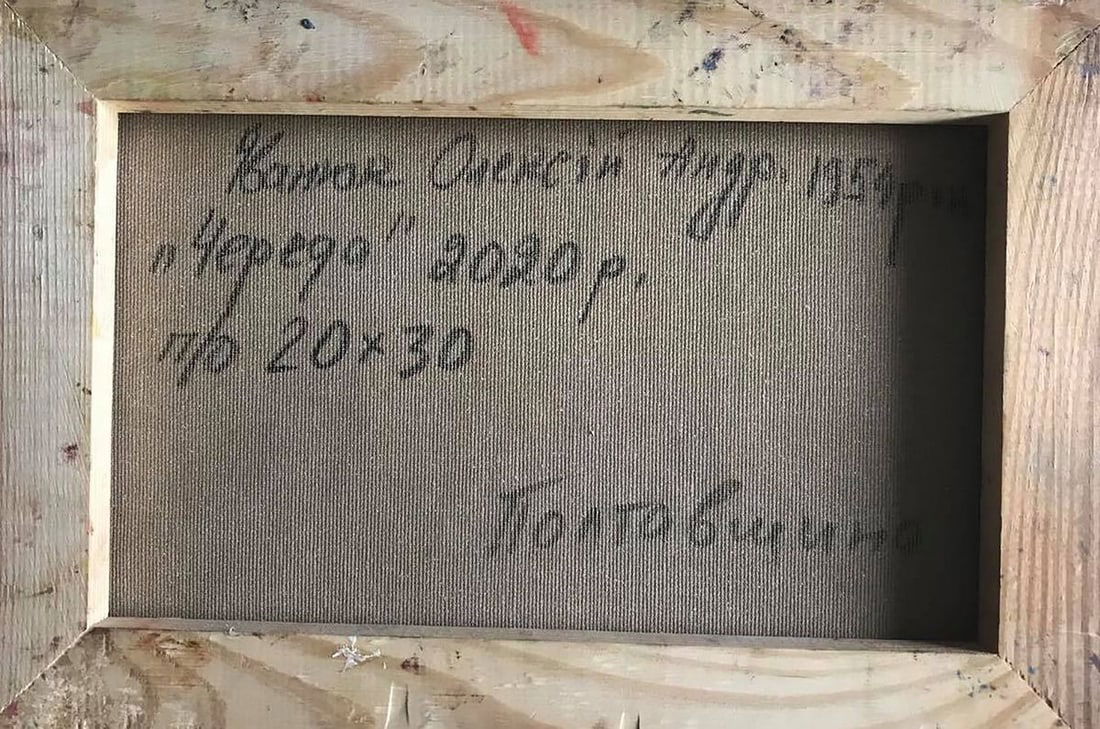 Іванюк Олексій Андр. 1954р.н
"Череда" 2020р.
п/о 20х30
Полтавщина